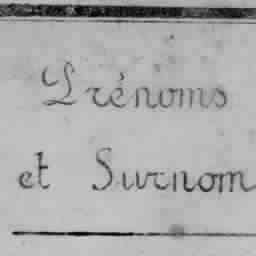 Prénoms
et Surnom